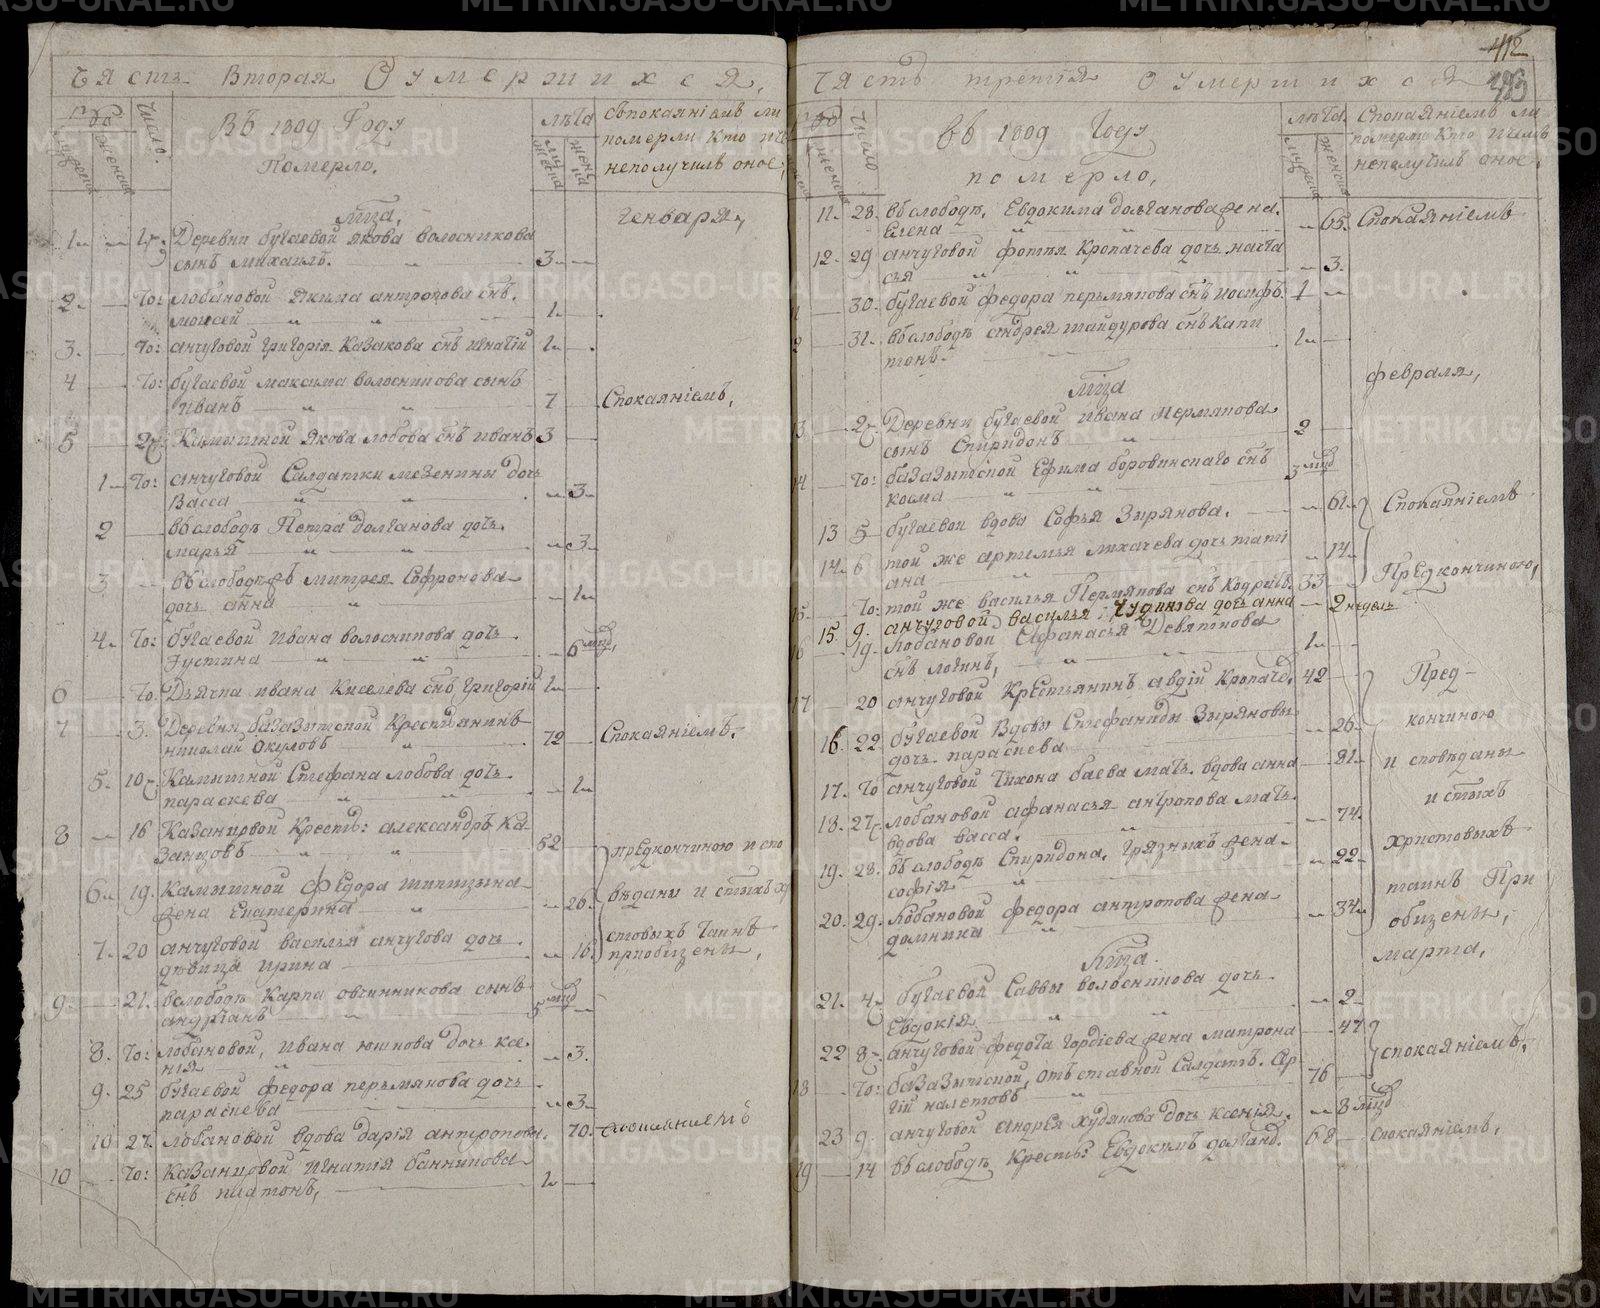 Часть Вторая О Умерших ся,
Число.
Въ 1809 Году
Померло.
лѣта
съпокаяніемъ ли
померли кто и че
неполучилъ оное,
мужеска
женска
лица,
Генваря,
1 — 1. Деревни бугаевой якова волосникова
сынъ михаилъ. 3
2. — То: лобановой якима антропова снъ.
моисей 1
3. — То: анчуговой григорія казакова снъ игнатій 1
4 — То: бугаевой максима волосникова сынъ
иванъ 7 Спокаяніемъ,
5 — 2. Камышной якова лобова снъ иванъ 3
1 То: анчуговой Салдатки мезенины дочь
Васса 3
2 — въслободѣ Петра долганова дочь.
марья 3
3 — въслободѣ митрея Софронова
дочь анна 1
4. То: бугаевой ивана волосникова дочь
Густина 6 мцд,
6 — То. Дьячка ивана киселева снъ григорій 1
7 — 3. Деревни базазытской Крестьянинъ
николай окуловъ 72 Спокаяніемъ.
5. 10 Камышной Стефана лобова дочь
параскева 1
8 — 16 Казанцовой Крестъ: александръ Ка
занцовъ 52 предкончиною и спо
6. 19. Камышной федора шипицына
жена Екатерина 26. вѣдани и стыхъ хр
7. 20 анчуговой василья анчугова дочь
дѣвица ирина 16. стовыхъ таинъ
приобщены,
9 — 21. вслободѣ Карпа овчинникова сынъ
андріанъ 5 мцд
8. То: лобановой, ивана юшкова дочь ксе
нія 3.
9. 25 бугаевой федора перьмякова дочь
параскева 3.
10 27. лобановой вдова дарія антропова. 70. спокаяніемъ
10 — То: казанцовой игнатія банникова
снъ платонъ, 1
412
Часть третія О Умерших ся
Число
въ 1809 Году
померло,
лѣта.
Спокаяніемъ ли
померли кто и чемъ
неполучилъ оное,
мужеска
женска
11. 28. въслободѣ, Евдокима долганова жена.
Елена 65. Спокаяніемъ
12. 29 анчуговой фотѣя Кропачева дочь наста
сья 3.
30. бугаевой федора перьмякова снъ иосифъ. 1
31. въслободѣ андрея шайдурова снъ капи
тонъ 1
лица
февраля,
13 — 2. Деревни бугаевой ивана Пермякова
сынъ Спиридонъ 2
14 — То: базазытской Ефима боровинскаго снъ
козма 3 мцд
13 5 бугаевой вдова Софья Зырянова. 61 Спокаяніемъ
14. 6 той же артемья лихачева дочь тати
ана 14
15 — То: той же василья Пермякова снъ кодратъ. 33 Предкончиною,
15. 9. анчуговой василья Чудинова дочь анна — 2 недель
16 — 19. Лобановой Афанасья Девяткова
снъ логинъ, 1
17 — 20 анчуговой Крестьянинъ авдій Кропаче. 42 Пред-
16. 22. бугаевой Вдовы Стефаниды Зыряновы
дочь параскева 26. кончиною
17. То анчуговой тихона баева мать. вдова анна 81. и сповѣданы
18. 27. лобановой афанасья антропова мать.
вдова васса. 74. и стыхъ
19. 28. въслободѣ Спиридона, грязныхъ жена
софія 22. христовыхъ
20. 29. Лобановой федора антропова жена
домника 34 таинъ При
общены,
лица.
марта,
21. 4. бугаевой Саввы волосникова дочь
Евдокія 2
22 8. анчуговой федота гордіева жена матрона 47
18 — То: базазытской, отъставной Салдатъ. Ар
гій налетовъ 76 спокаяніемъ,
23 9. анчуговой андрея худякова дочь ксенія. 8 мцд
19 — 14 въслободѣ кресть: Евдокимъ долган. 68 спокаяніемъ,